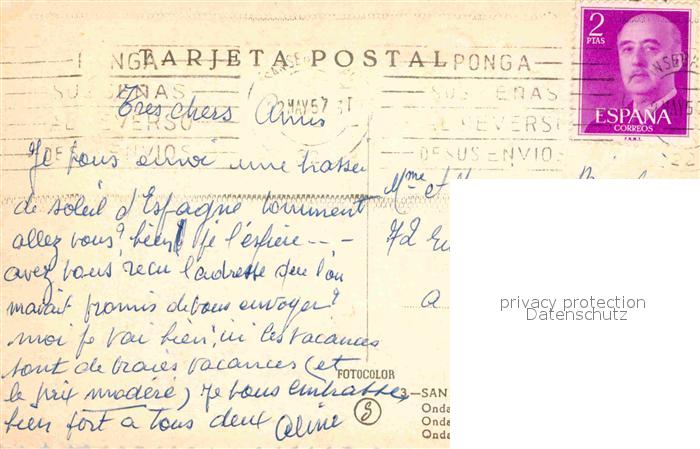 TARJETA POSTAL
PONGA
SUS SEÑAS
AL REVERSO
DE SUS ENVIOS
MAY 57
PONGA
SUS SEÑAS
AL REVERSO
DE SUS ENVIOS
2
PTAS
ESPAÑA
CORREOS
F.N.M.T.
Tres chers Amis
Je vous envoi une tasse
de soleil d'Espagne comment
allez vous? bien je l'espère ---
avez vous recu l'adresse que l'on
mavait promis de vous envoyer?
moi je vai bien, ici les vacances
sont de vraies vacances (et
le prix modéré) Je vous embrasse
bien fort a tous deux Céline
Mme et
72
a
FOTOCOLOR
3-SAN
Onda
Onda
Onda
privacy protection
Datenschutz